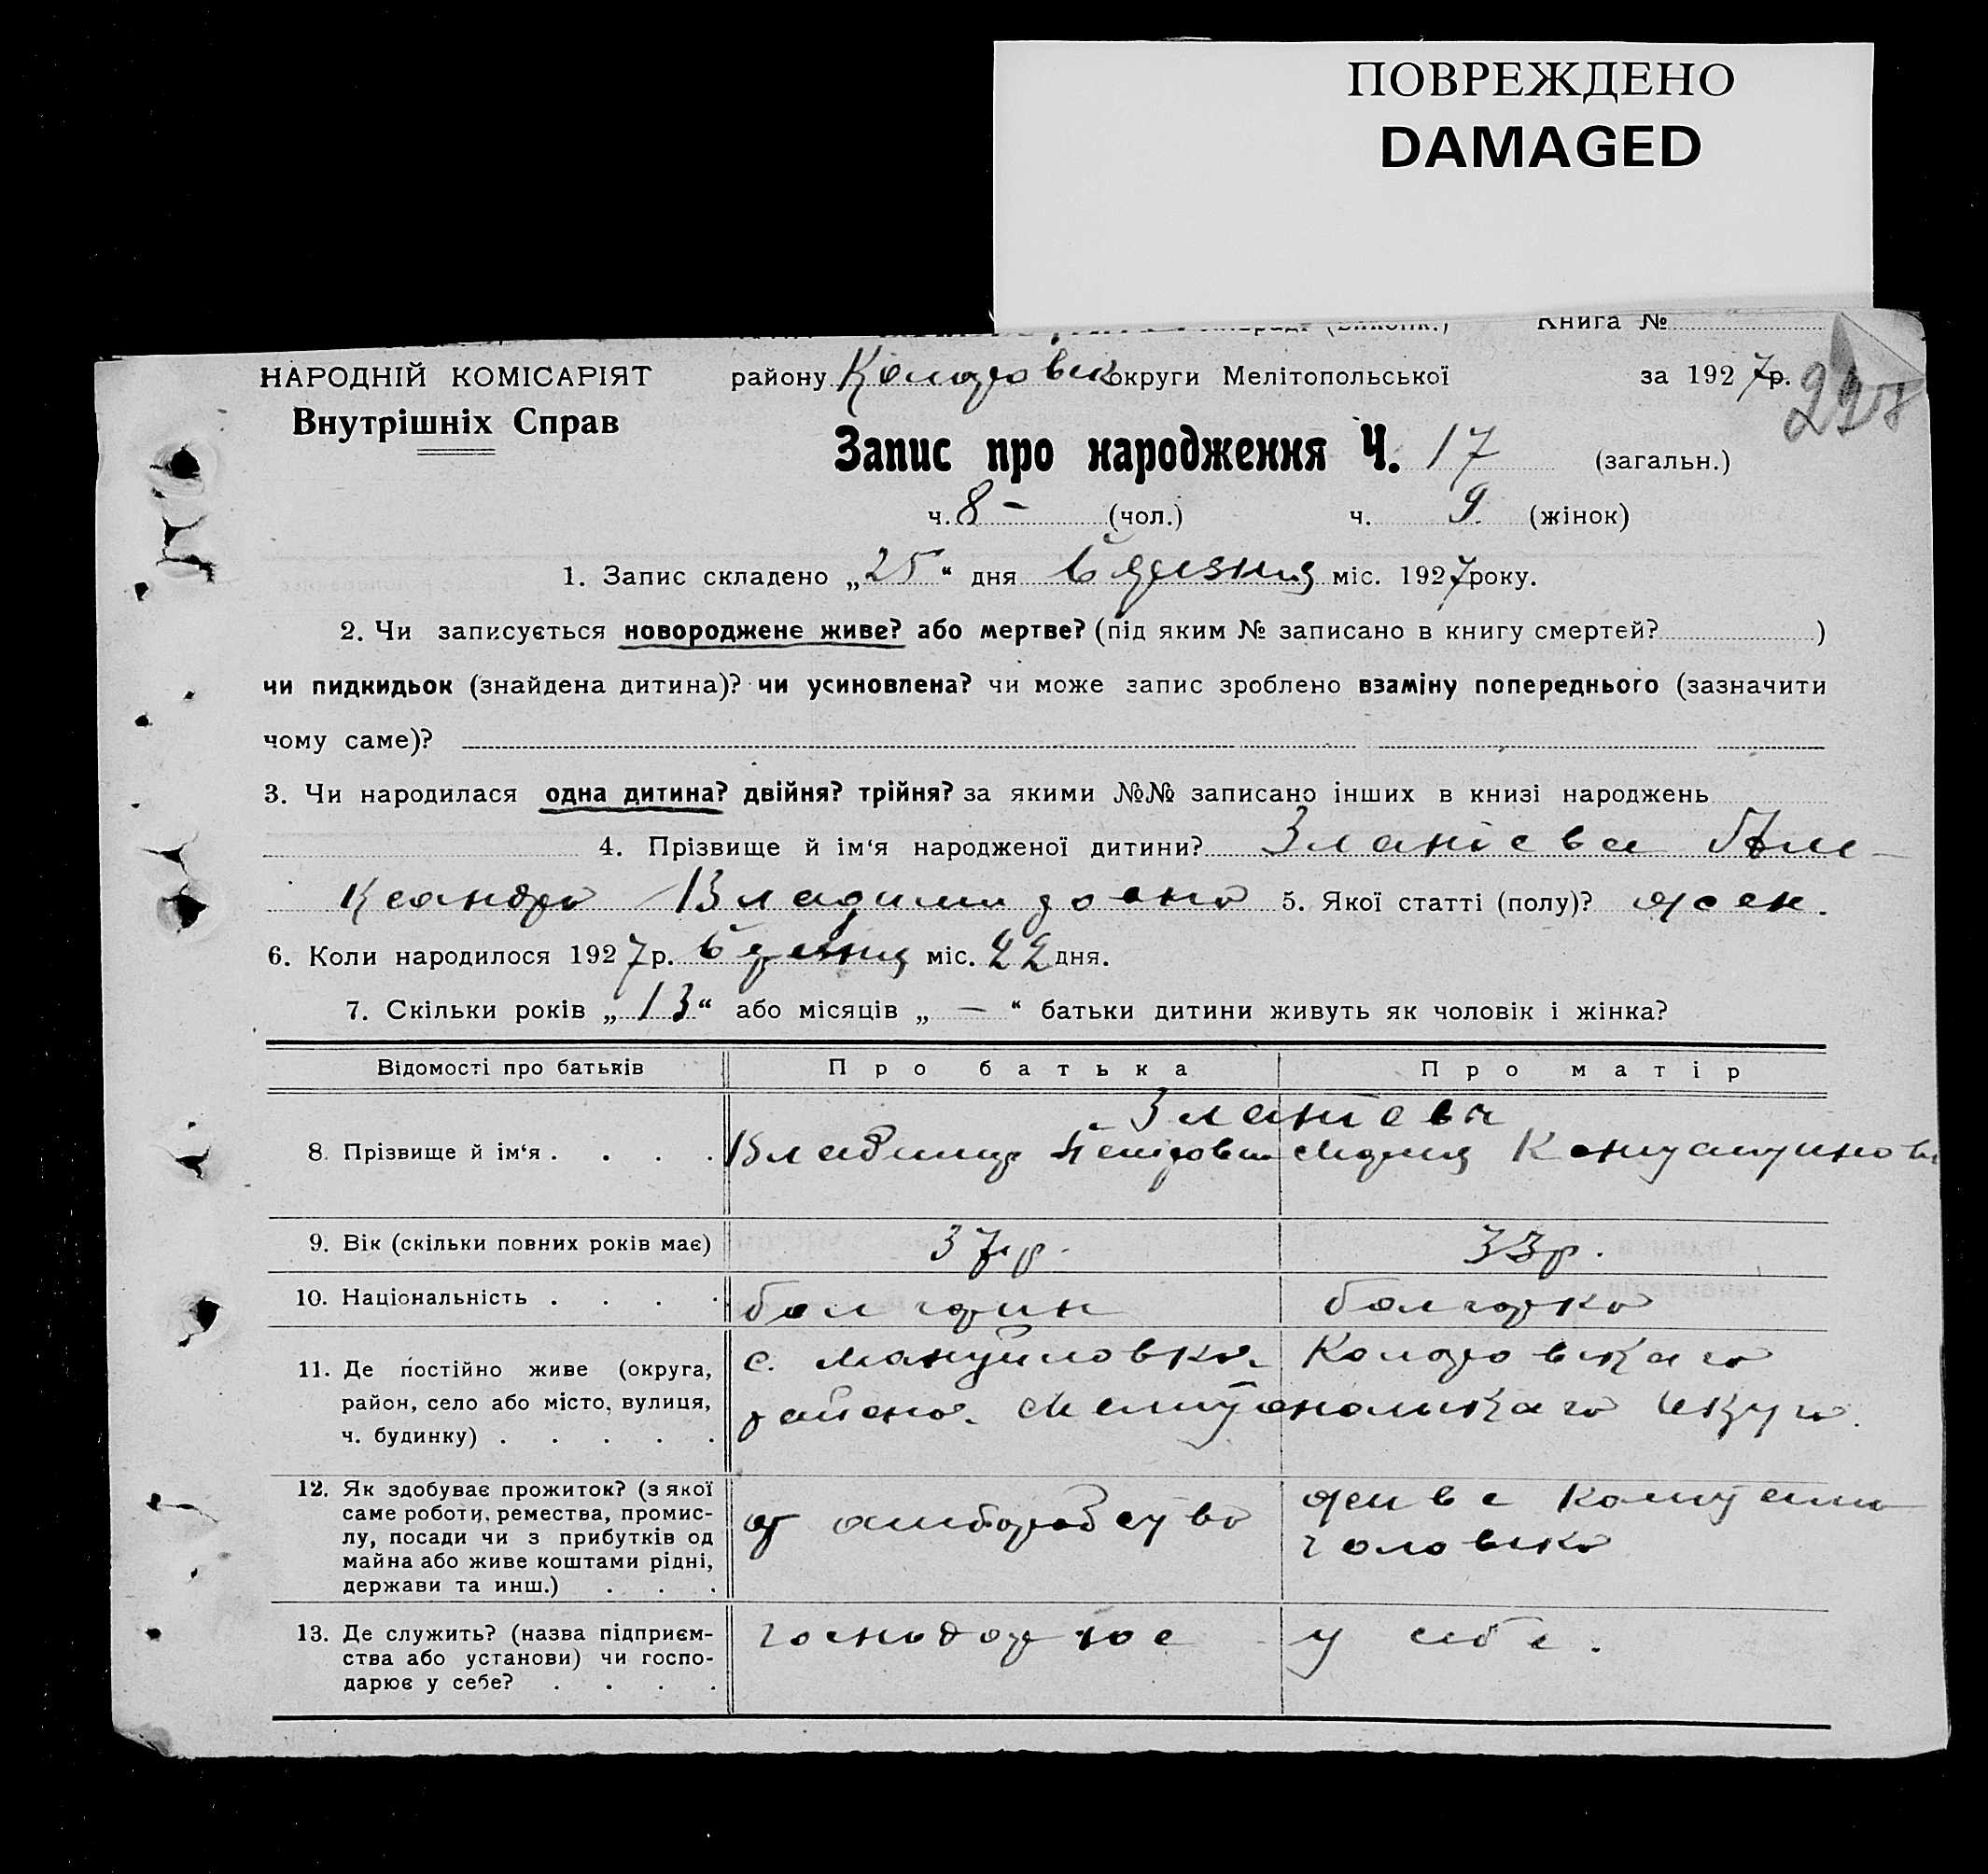 ПОВРЕЖДЕНО
DAMAGED
Книга №
НАРОДНІЙ КОМІСАРІЯТ
Внутрішніх Справ
району Коларовск округи Мелітопольської за 1927 р.
228
Запис про народження Ч. 17 (загальн.)
ч. 8 – (чол.) ч. 9 (жінок)
1. Запис складено „25“ дня міс. 1927 року.
2. Чи записується новороджене живе? або мертве? (під яким № записано в книгу смертей? )
чи пидкидьок (знайдена дитина)? чи усиновлена? чи може запис зроблено взаміну попереднього (зазначити
чому саме)?
3. Чи народилася одна дитина? двійня? трійня? за якими №№ записано інших в книзі народжень
4. Прізвище й ім‘я народженої дитини? Златієва Але-
ксандра Владимировна 5. Якої статті (полу)? жен.
6. Коли народилося 1927 р. міс. 22 дня.
7. Скільки років „13“ або місяців „ — “ батьки дитини живуть як чоловік і жінка?
Відомості про батьків Про батька Про матір
Златіеви
8. Прізвище й ім‘я . . . . Владимир Петрович Мария Константинов
9. Вік (скільки повних років має) 37 р. 33 р.
10. Національність . . . . болгарин болгарка
11. Де постійно живе (округа,
район, село або місто, вулиця,
ч. будинку) . . . . .
с. Мануйловка Коларовскаго
района Мелитопольскаго округа.
12. Як здобуває прожиток? (з якої
саме роботи, ремества, промис-
лу, посади чи з прибутків од
майна або живе коштами рідні,
держави та инш.) . . .
хліборобство
живе коштами
чоловіка
13. Де служить? (назва підприєм-
ства або установи) чи госпо-
дарює у себе? . . . .
господарює у себе.